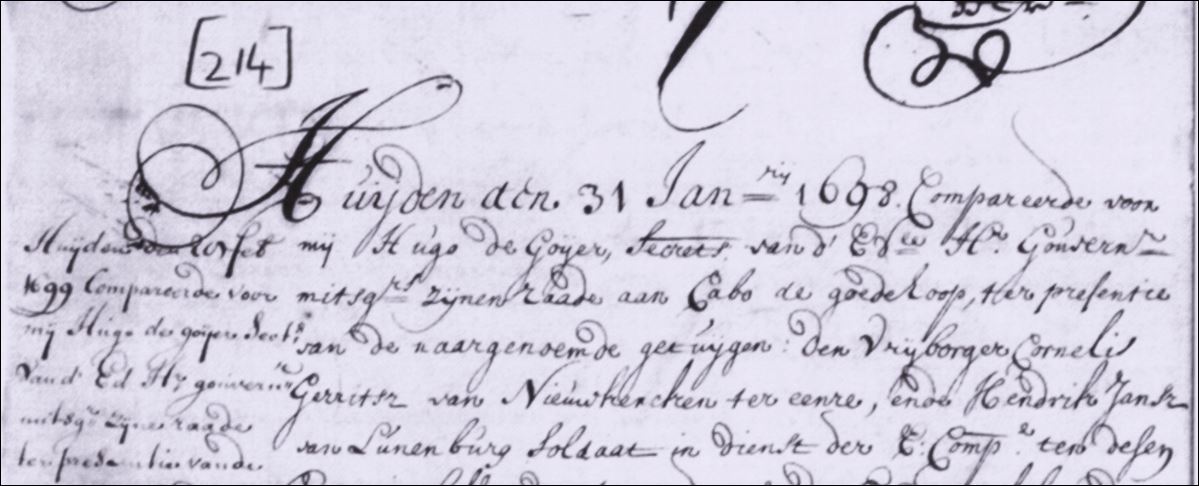 [214]
Huijden den 31 Jan=rij 1698. Compareerde voor
mij Hugo de Goijer, Secrets. van d' Ed=ee Hr. Gouvern=r
mitsg=rs zijnen raade aan Cabo de goede hoop, ter presentie
van de naargenoemde getuijgen: den Vrijborger Cornelis
Gerritsz van Nieuwkercken ter eenre, ende Hendrik Jansz
van Lunenburg Soldaat in dienst der E. Comp.e ten desen
Huijden den feb
1699 Compareerde voor
mij Hugo de goijer Sect.s
van d' Ed Hr gouverneur
mitsg.s zijne raade
ter presentie van de